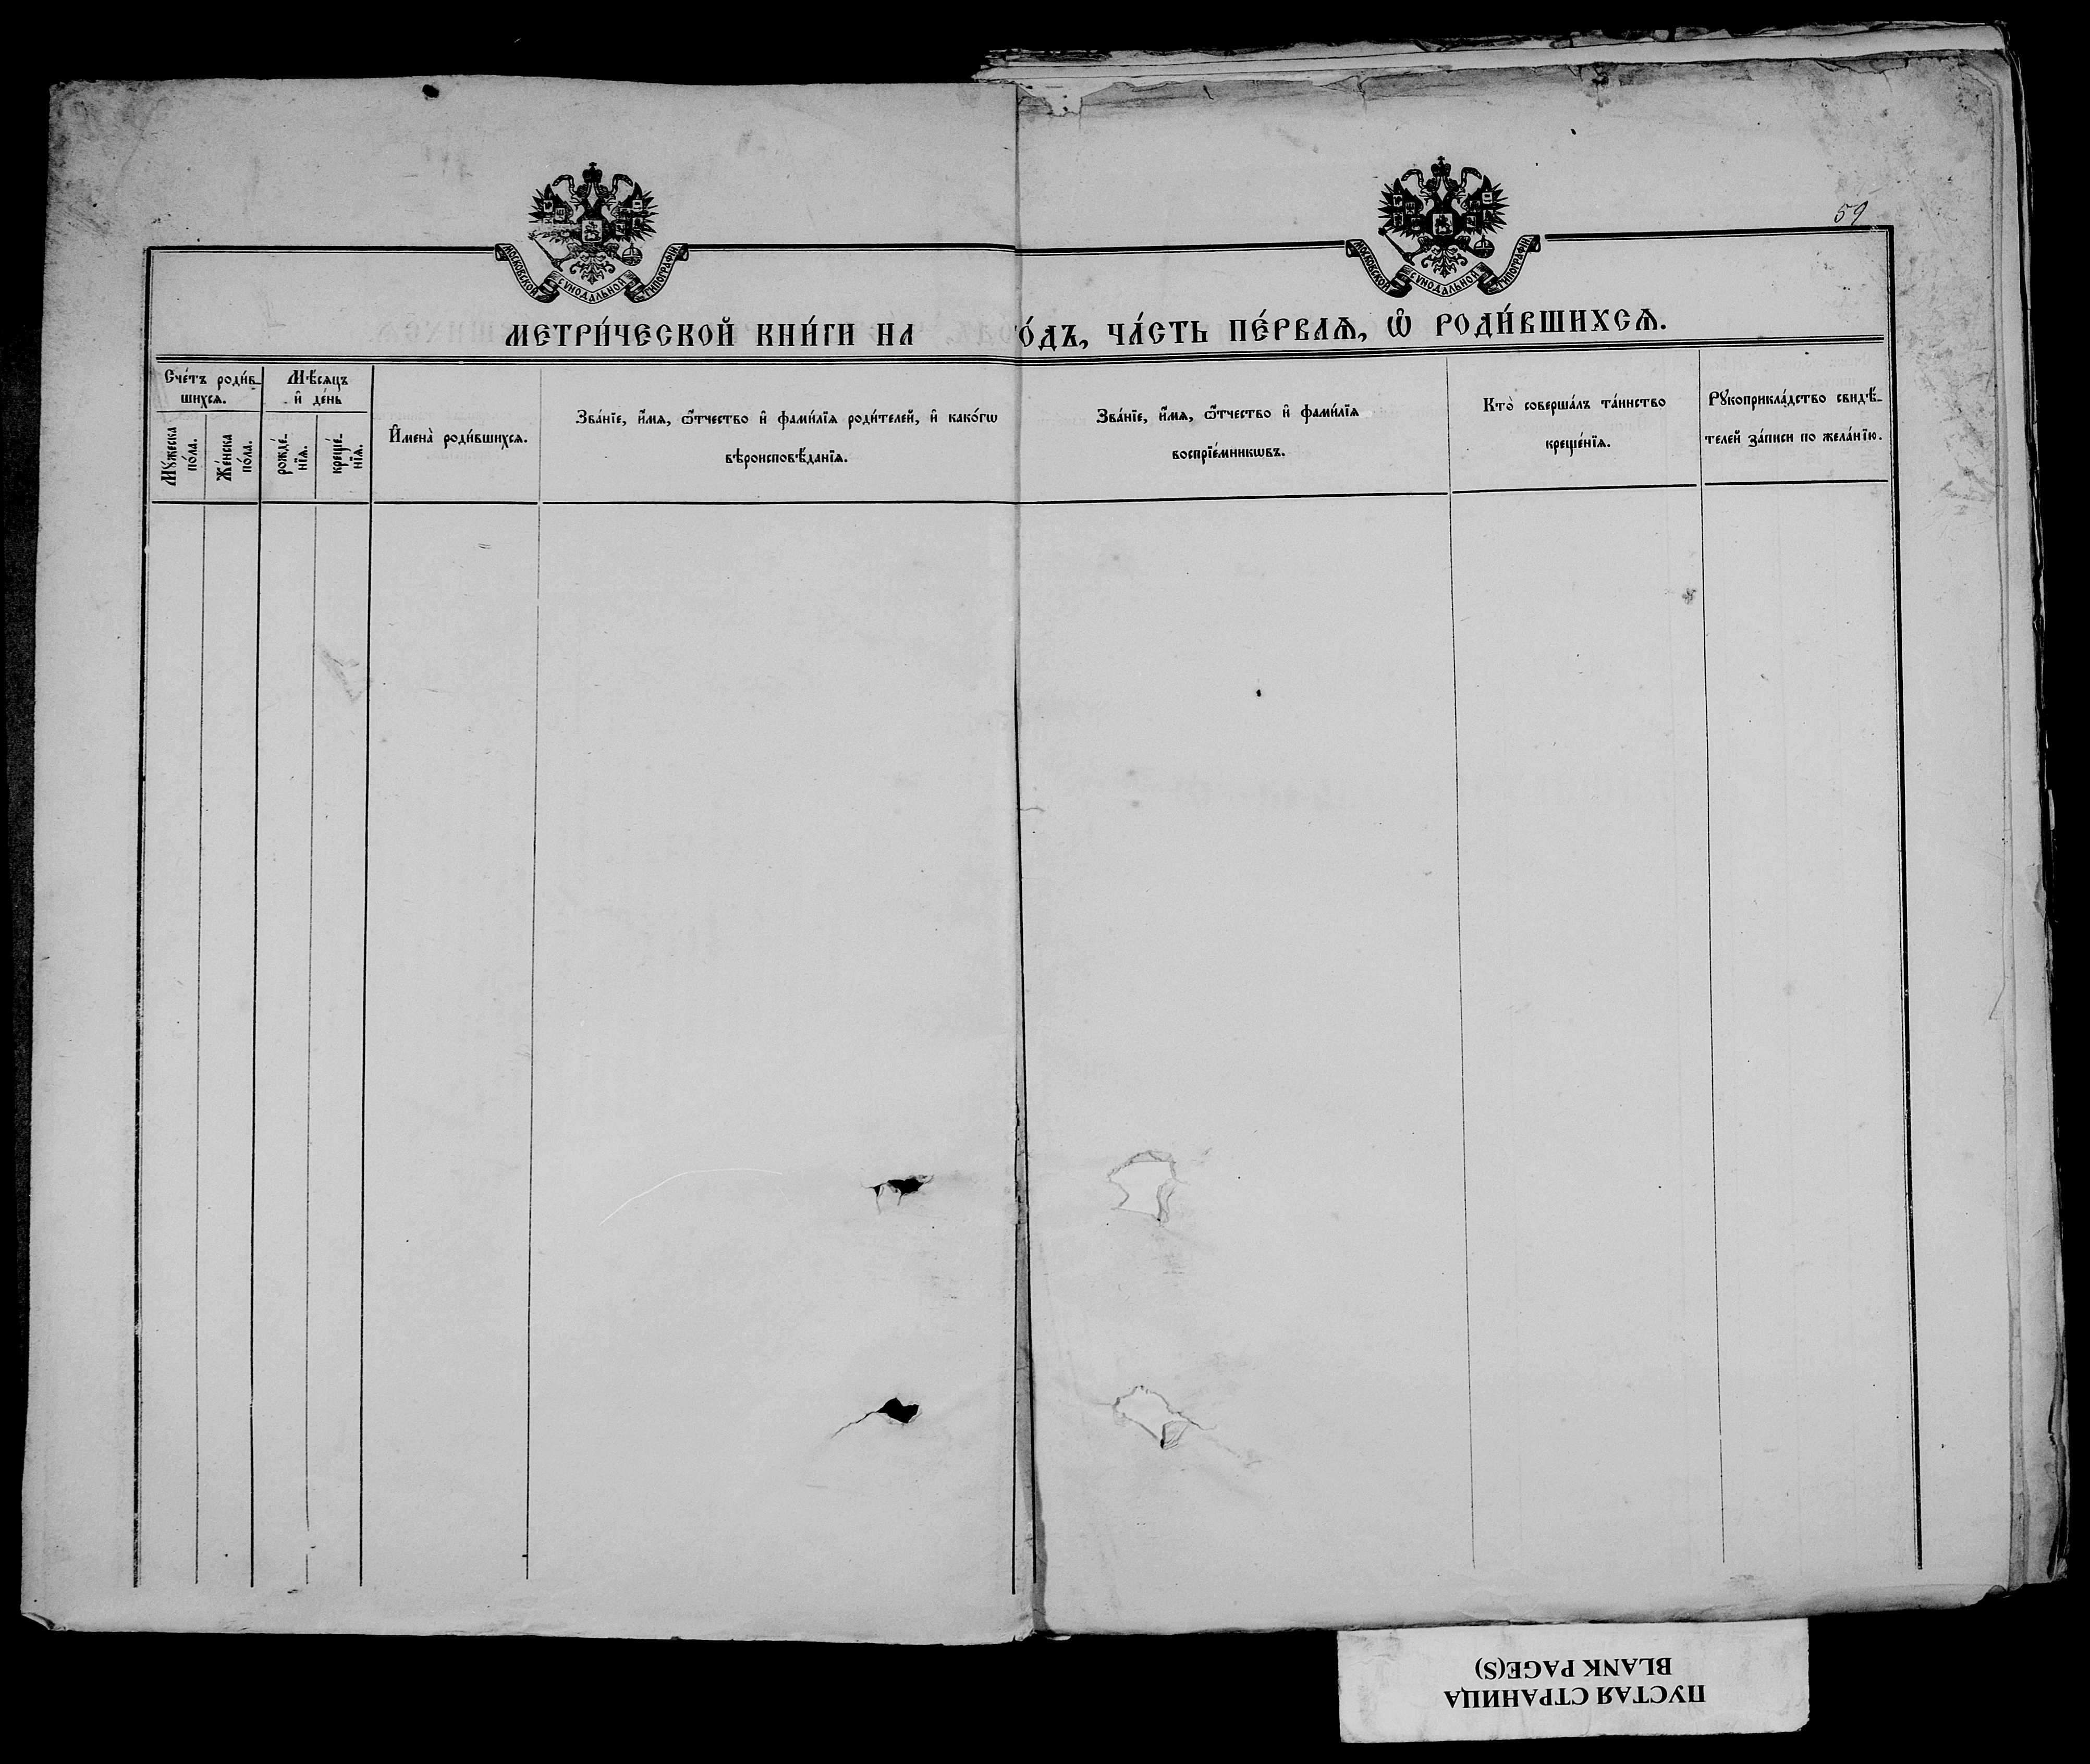 59
МОСКОВСКОЙ СѴНОДАЛЬНОЙ ТИПОГРАФІИ
МОСКОВСКОЙ СѴНОДАЛЬНОЙ ТИПОГРАФІИ
МЕТРИ́ЧЕСКОЙ КНИ́ГИ НА О́ДЪ, ЧА́СТЬ ПЕ́РВАѦ, Ѽ РОДИ́ВШИХСѦ.
Сче́тъ роди́в-
шихсѧ.
Мѣ́сѧцъ
и҆ де́нь
Мꙋ́жеска
по́ла.
Же́нска
по́ла.
рожде́-
нїѧ.
креще́-
нїѧ.
И҆мена̀ роди́вшихсѧ.
Зва́нїе, и҆́мѧ, ѻ҆́тчество и҆ фами́лїѧ роди́телей, и҆ како́гѡ
вѣроисповѣ́данїѧ.
Зва́нїе, и҆́мѧ, ѻ҆́тчество и҆ фами́лїѧ
воспрїе́мникѡвъ.
Кто̀ соверша́лъ та́инство
креще́нїѧ.
Рꙋкоприкла́дство свидѣ́-
телей за́писи по жела́нїю.
ПУСТАЯ СТРАНИЦА
BLANK PAGE(S)